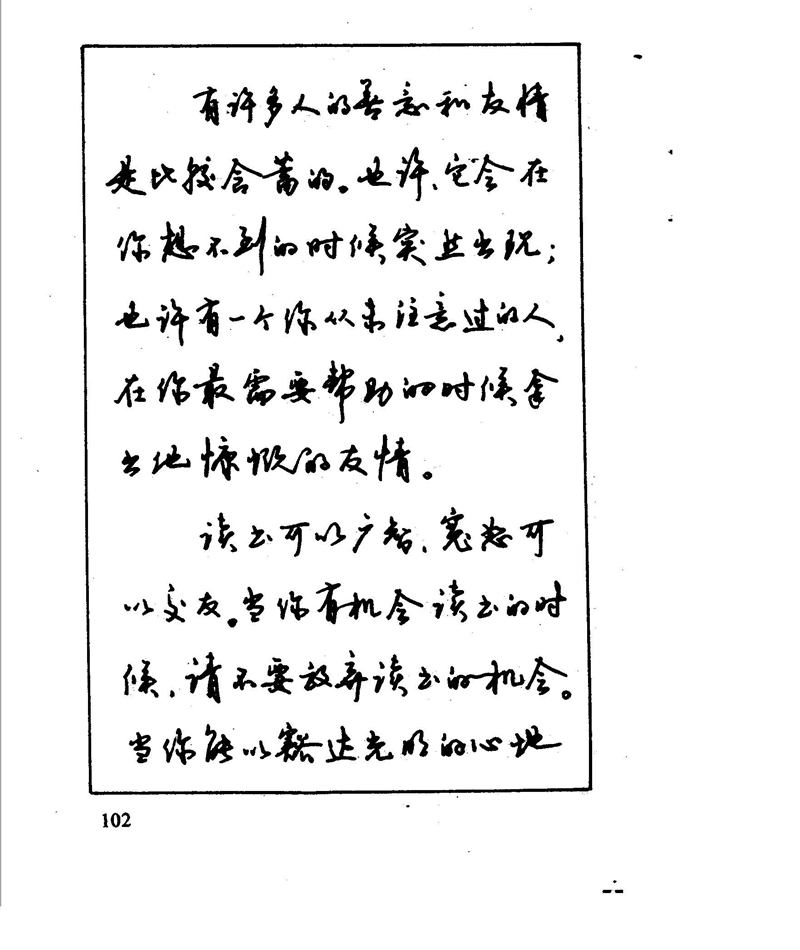 有许多人的善意和友情
是比较含蓄的。也许，它会在
你想不到的时候突然出现；
也许有一个你从未注意过的人，
在你最需要帮助的时候拿
出他慷慨的友情。
读书可以广智，宽恕可
以交友。当你有机会读书的时
候，请不要放弃读书的机会。
当你能以豁达光明的心地
102